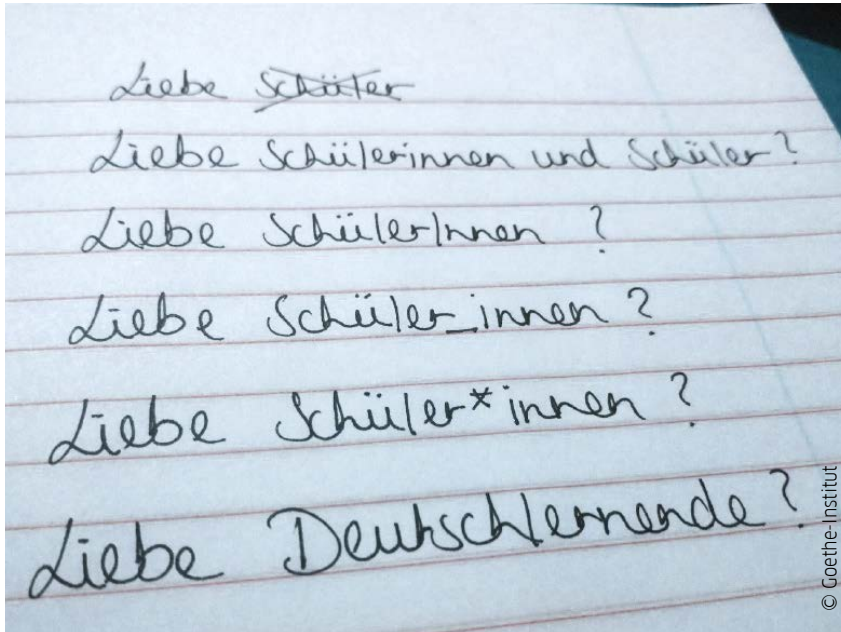 Liebe Schüler
Liebe Schülerinnen und Schüler?
Liebe SchülerInnen ?
Liebe Schüler_innen ?
Liebe Schüler*innen ?
Liebe Deutschlernende ?
© Goethe-Institut